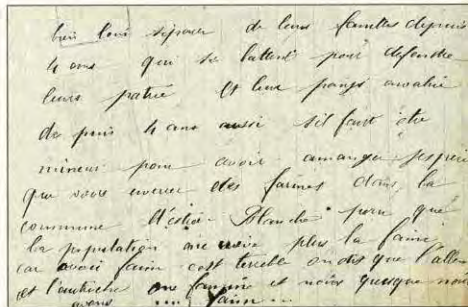 bien loui séparer de leurs familles depuis
4 ans qui se battent pour défendre
leurs patrie et leur pays anvahie
de puis 4 ans aussi sil faut être
mineur pour avoir amanger jespere
que vous enverer des farines dans la
commune pour que
la population naie plus la faim
car avoir faim cest terrible on dit que l'alle
et l'autriche one famine et nous quesque nous
avons faim